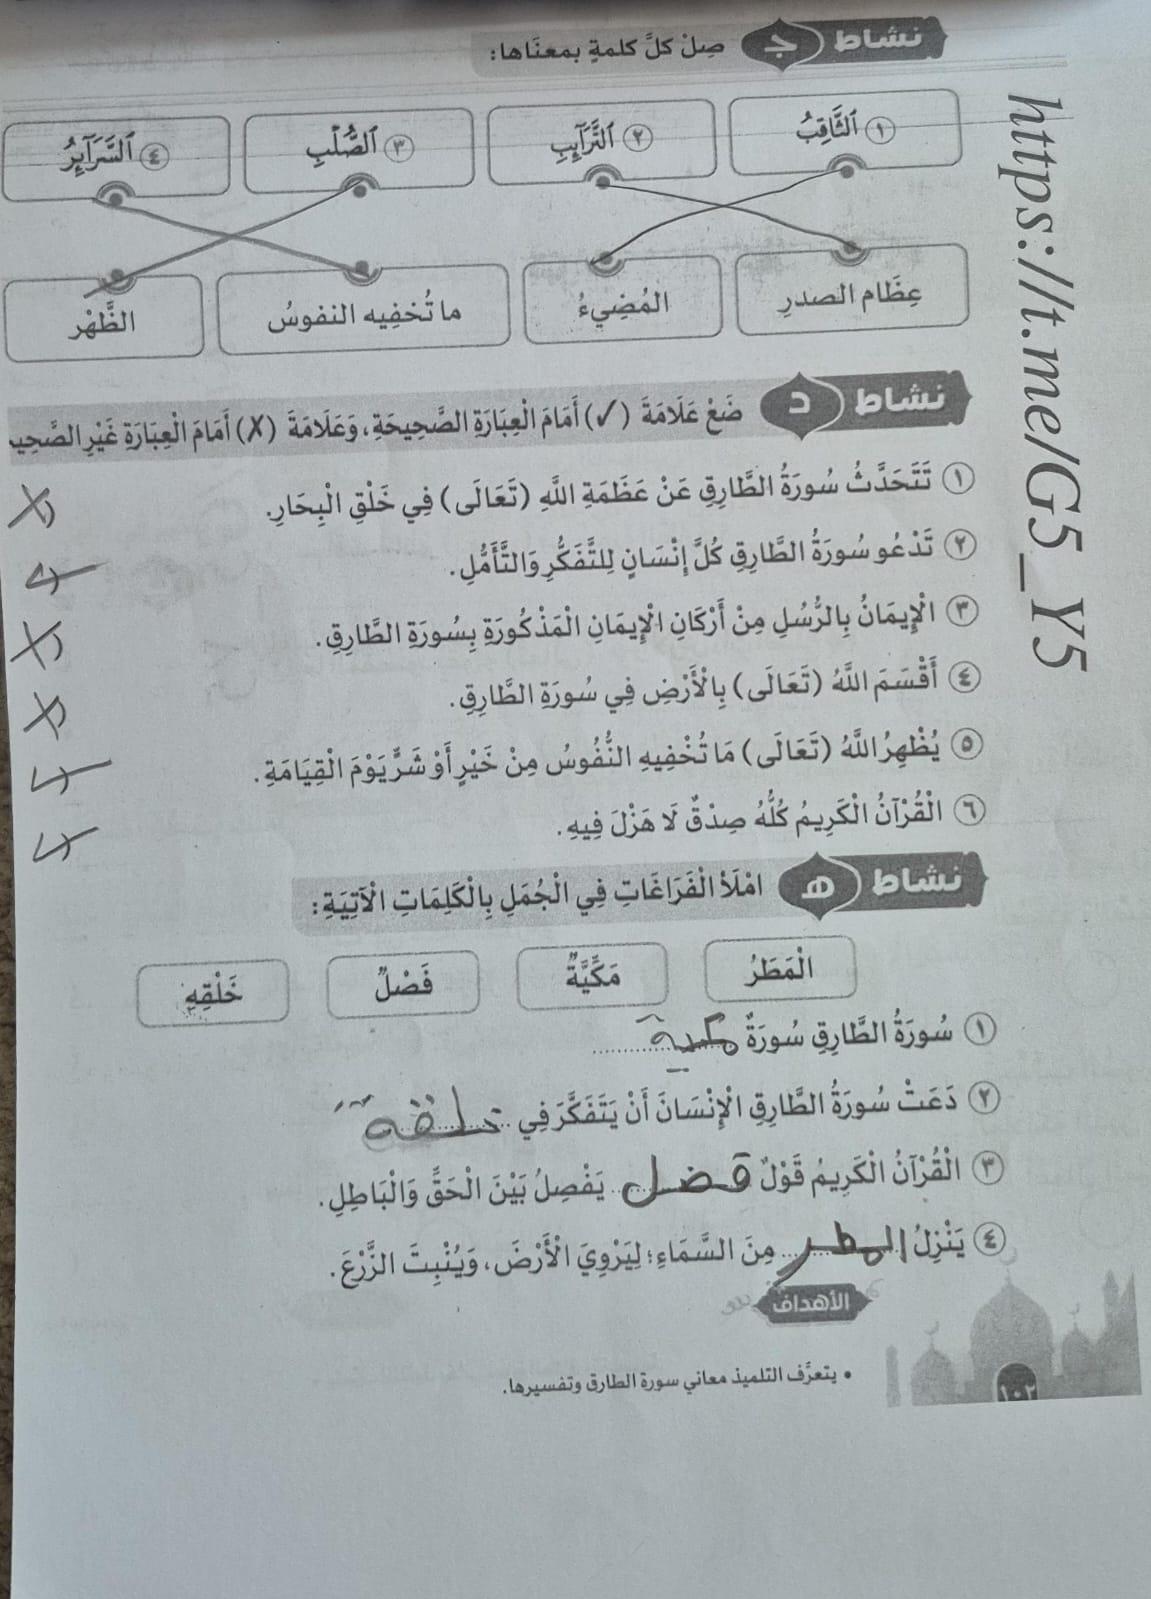 نشاط ج صِلْ كلَّ كلمةٍ بمعنَاها:
١ ٱلثَّاقِبُ ٢ ٱلتَّرَآئِبِ ٣ ٱلصُّلْبِ ٤ ٱلسَّرَآئِرُ
عِظَام الصدرِ المُضِيءُ ما تُخفِيه النفوسُ الظَّهْر
نشاط د ضَعْ عَلَامَةَ (✓) أَمَامَ الْعِبَارَةِ الصَّحِيحَةِ، وَعَلَامَةَ (✗) أَمَامَ الْعِبَارَةِ غَيْرِ الصَّحِيحَ
١ تَتَحَدَّثُ سُورَةُ الطَّارِقِ عَنْ عَظَمَةِ اللَّهِ (تَعَالَى) فِي خَلْقِ الْبِحَارِ. ✗
٢ تَدْعُو سُورَةُ الطَّارِقِ كُلَّ إِنْسَانٍ لِلتَّفَكُّرِ وَالتَّأَمُّلِ. ✓
٣ الْإِيمَانُ بِالرُّسُلِ مِنْ أَرْكَانِ الْإِيمَانِ الْمَذْكُورَةِ بِسُورَةِ الطَّارِقِ. ✗
٤ أَقْسَمَ اللَّهُ (تَعَالَى) بِالْأَرْضِ فِي سُورَةِ الطَّارِقِ. ✗
٥ يُظْهِرُ اللَّهُ (تَعَالَى) مَا تُخْفِيهِ النُّفُوسُ مِنْ خَيْرٍ أَوْ شَرٍّ يَوْمَ الْقِيَامَةِ. ✓
٦ الْقُرْآنُ الْكَرِيمُ كُلُّهُ صِدْقٌ لَا هَزْلَ فِيهِ. ✓
نشاط هـ امْلَأْ الْفَرَاغَاتِ فِي الْجُمَلِ بِالْكَلِمَاتِ الْآتِيَةِ:
الْمَطَرُ مَكِّيَّةٌ فَصْلٌ خَلْقِهِ
١ سُورَةُ الطَّارِقِ سُورَةٌ مكية
٢ دَعَتْ سُورَةُ الطَّارِقِ الْإِنْسَانَ أَنْ يَتَفَكَّرَ فِي خلقة
٣ الْقُرْآنُ الْكَرِيمُ قَوْلٌ فضل يَفْصِلُ بَيْنَ الْحَقِّ وَالْبَاطِلِ.
٤ يَنْزِلُ المطر مِنَ السَّمَاءِ؛ لِيَرْوِيَ الْأَرْضَ، وَيُنْبِتَ الزَّرْعَ.
الأهداف
• يتعرَّف التلميذ معاني سورة الطارق وتفسيرها.
١٠٢
https://t.me/G5_Y5